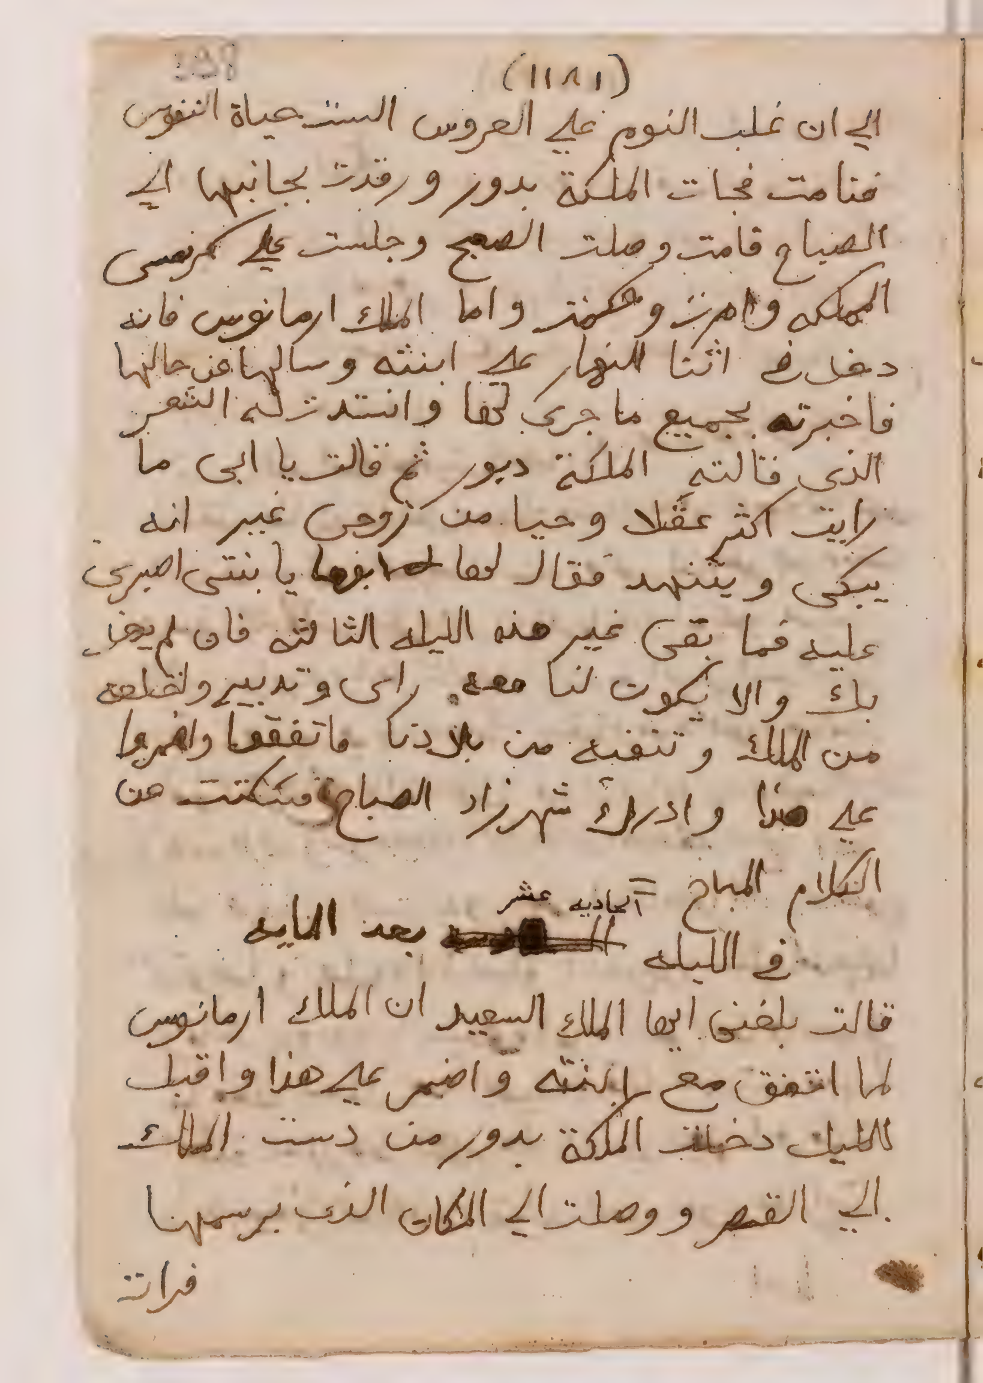 (١١٨١)
الي ان غلب النوم علي العروس الست حياة النفوس
فنامت فجات الملكة بدور ورقدت بجانبها الي
الصباح قامت وصلت الصبح وجلست علي كرسي
المملكه وامرت وحكمت واما الملك ارمانوس فانه
دخل في اثنا النهار علي ابنته وسالها عن حالها
فاخبرته بجميع ما جري لها وانشدت له الشعر
الذي قالته الملكة دبور ثم قالت يا ابي ما
رايت اكثر عقلا وحيا من زوجي غير انه
يبكي ويتنهد فقال لها ابوها يا بنتي اصبري
عليه فما بقي غير هذه الليله الثالثه فان لم يدخل
بك والا يكون لنا معه راي وتدبير ونخلعه
من الملك وتنفيه من بلادنا فاتفقوا واضمروا
علي هذا وادرك شهرزاد الصباح فسكتت عن
الكلام المباح
الحاديه عشر
في الليله بعد المايه
قالت بلغني ايها الملك السعيد ان الملك ارمانوس
لما اتفق مع ابنته واضمر علي هذا واقبل
الليل دخلت الملكة بدور من دست الملك
الي القصر ووصلت الي المكان الذي برسمها
فرات